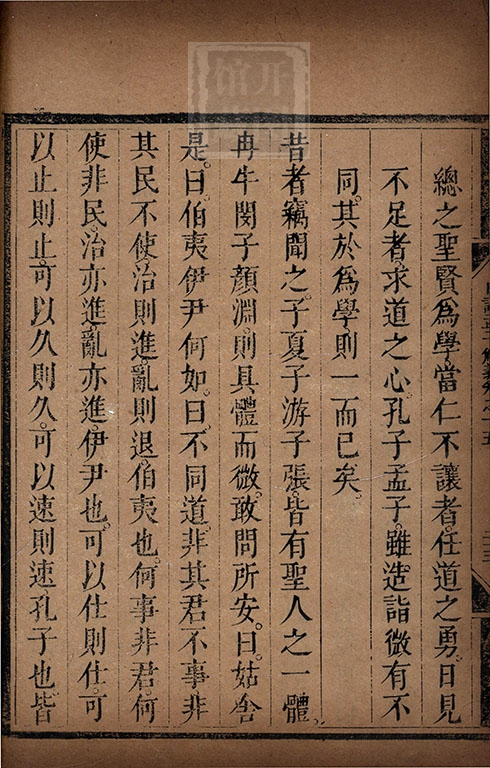 總之聖賢爲學當仁不讓者任道之勇日見
不足者求道之心孔子孟子雖造詣微有不
同其於爲學則一而已矣
昔者竊聞之子夏子游子張皆有聖人之一體
冉牛閔子顏淵則具體而微敢問所安曰姑舍
是曰伯夷伊尹何如曰不同道非其君不事非
其民不使治則進亂則退伯夷也何事非君何
使非民治亦進亂亦進伊尹也可以仕則仕可
以止則止可以久則久可以速則速孔子也皆